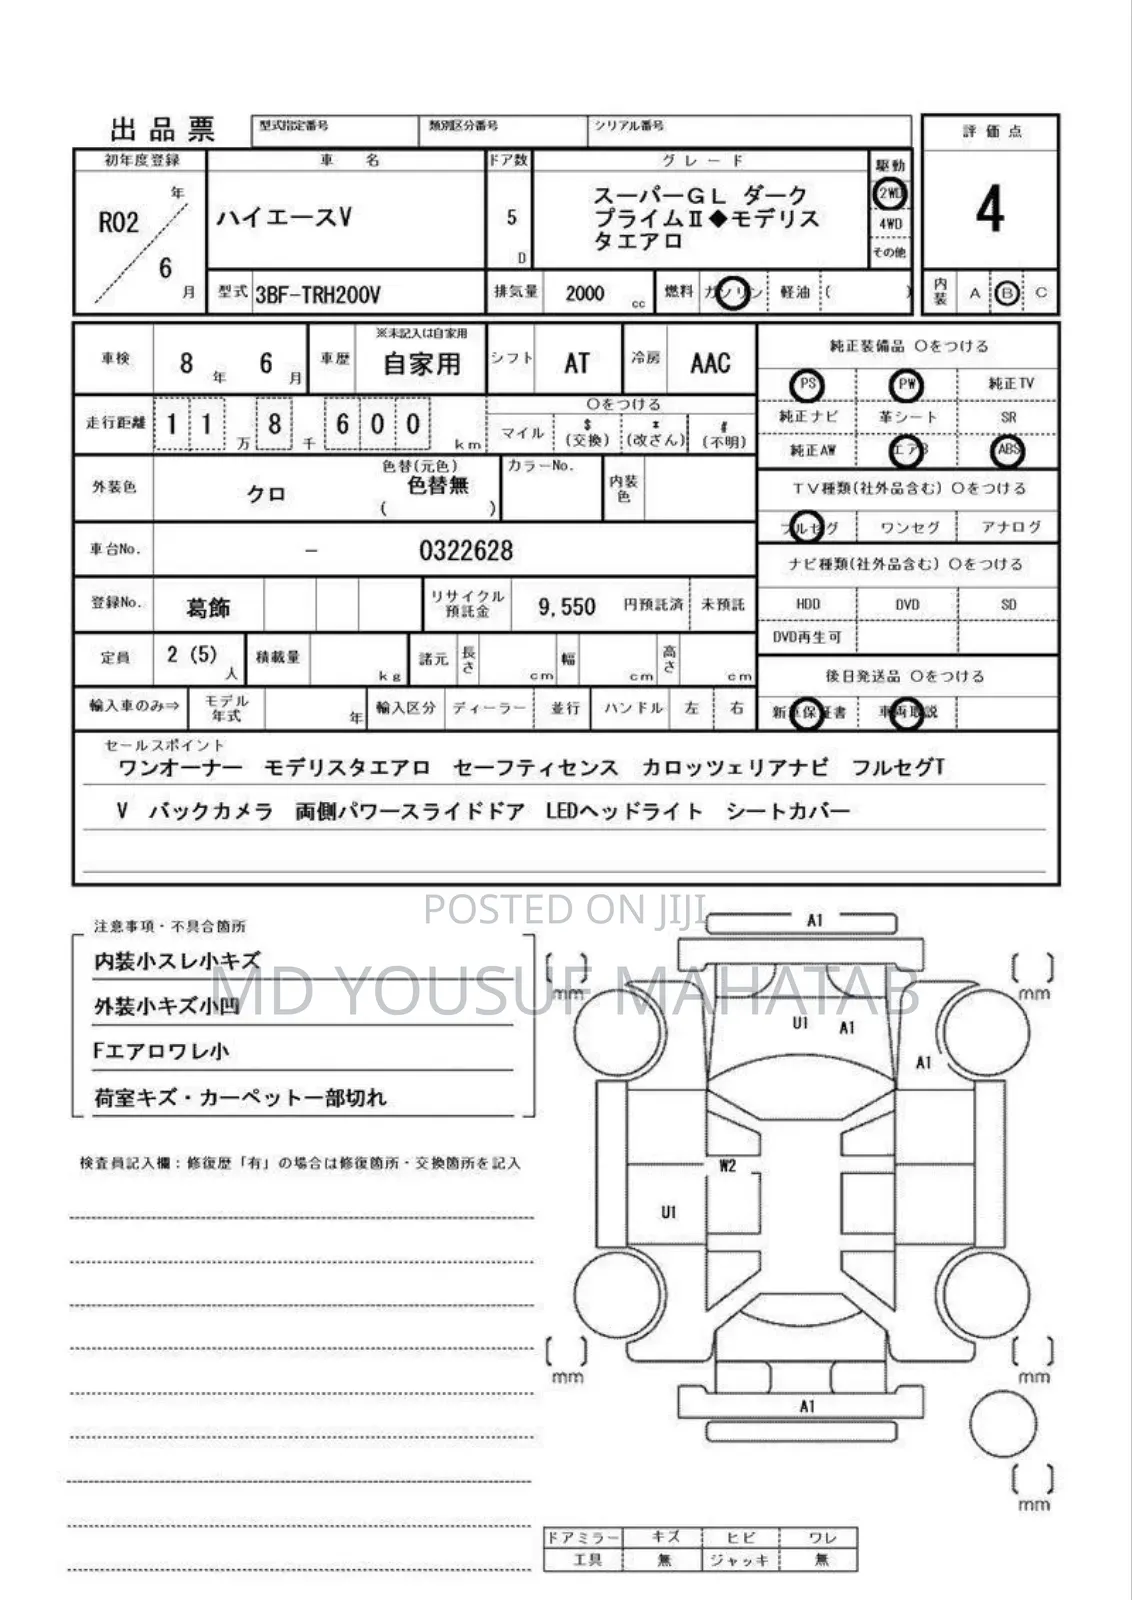 出品票 型式指定番号 類別区分番号 シリアル番号 評価点
初年度登録 車名 ドア数 グレード 駆動
R02 年 6 月 ハイエースV 5 D スーパーGL ダーク 2WD 4
プライムⅡ◆モデリス 4WD
タエアロ その他
型式 3BF-TRH200V 排気量 2000 cc 燃料 ガソリン 軽油 ( ) 内装 A B C
※未記入は自家用 純正装備品 〇をつける
車検 8 年 6 月 車歴 自家用 シフト AT 冷房 AAC
PS PW 純正TV
走行距離 1 1 万 8 千 6 0 0 km 〇をつける
マイル $(交換) *(改ざん) #(不明)
純正ナビ 革シート SR
純正AW エアB ABS
外装色 クロ 色替(元色) 色替無 ( ) カラーNo. 内装色
TV種類(社外品含む) 〇をつける
フルセグ ワンセグ アナログ
車台No. - 0322628
ナビ種類(社外品含む) 〇をつける
登録No. 葛飾 リサイクル預託金 9,550 円預託済 未預託
HDD DVD SD
DVD再生可
定員 2 (5) 人 積載量 kg 諸元 長さ cm 幅 cm 高さ cm
後日発送品 〇をつける
輸入車のみ⇒ モデル年式 年 輸入区分 ディーラー 並行 ハンドル 左 右
新車保証書 車両取説
セールスポイント
ワンオーナー モデリスタエアロ セーフティセンス カロッツェリアナビ フルセグT
V バックカメラ 両側パワースライドドア LEDヘッドライト シートカバー
POSTED ON JIJI
MD YOUSUF MAHATAB
注意事項・不具合箇所
内装小スレ小キズ
外装小キズ小凹
Fエアロワレ小
荷室キズ・カーペット一部切れ
検査員記入欄：修復歴「有」の場合は修復箇所・交換箇所を記入
A1
mm mm
U1 A1
A1
W2
U1
mm mm
A1
mm
ドアミラー キズ ヒビ ワレ
工具 無 ジャッキ 無